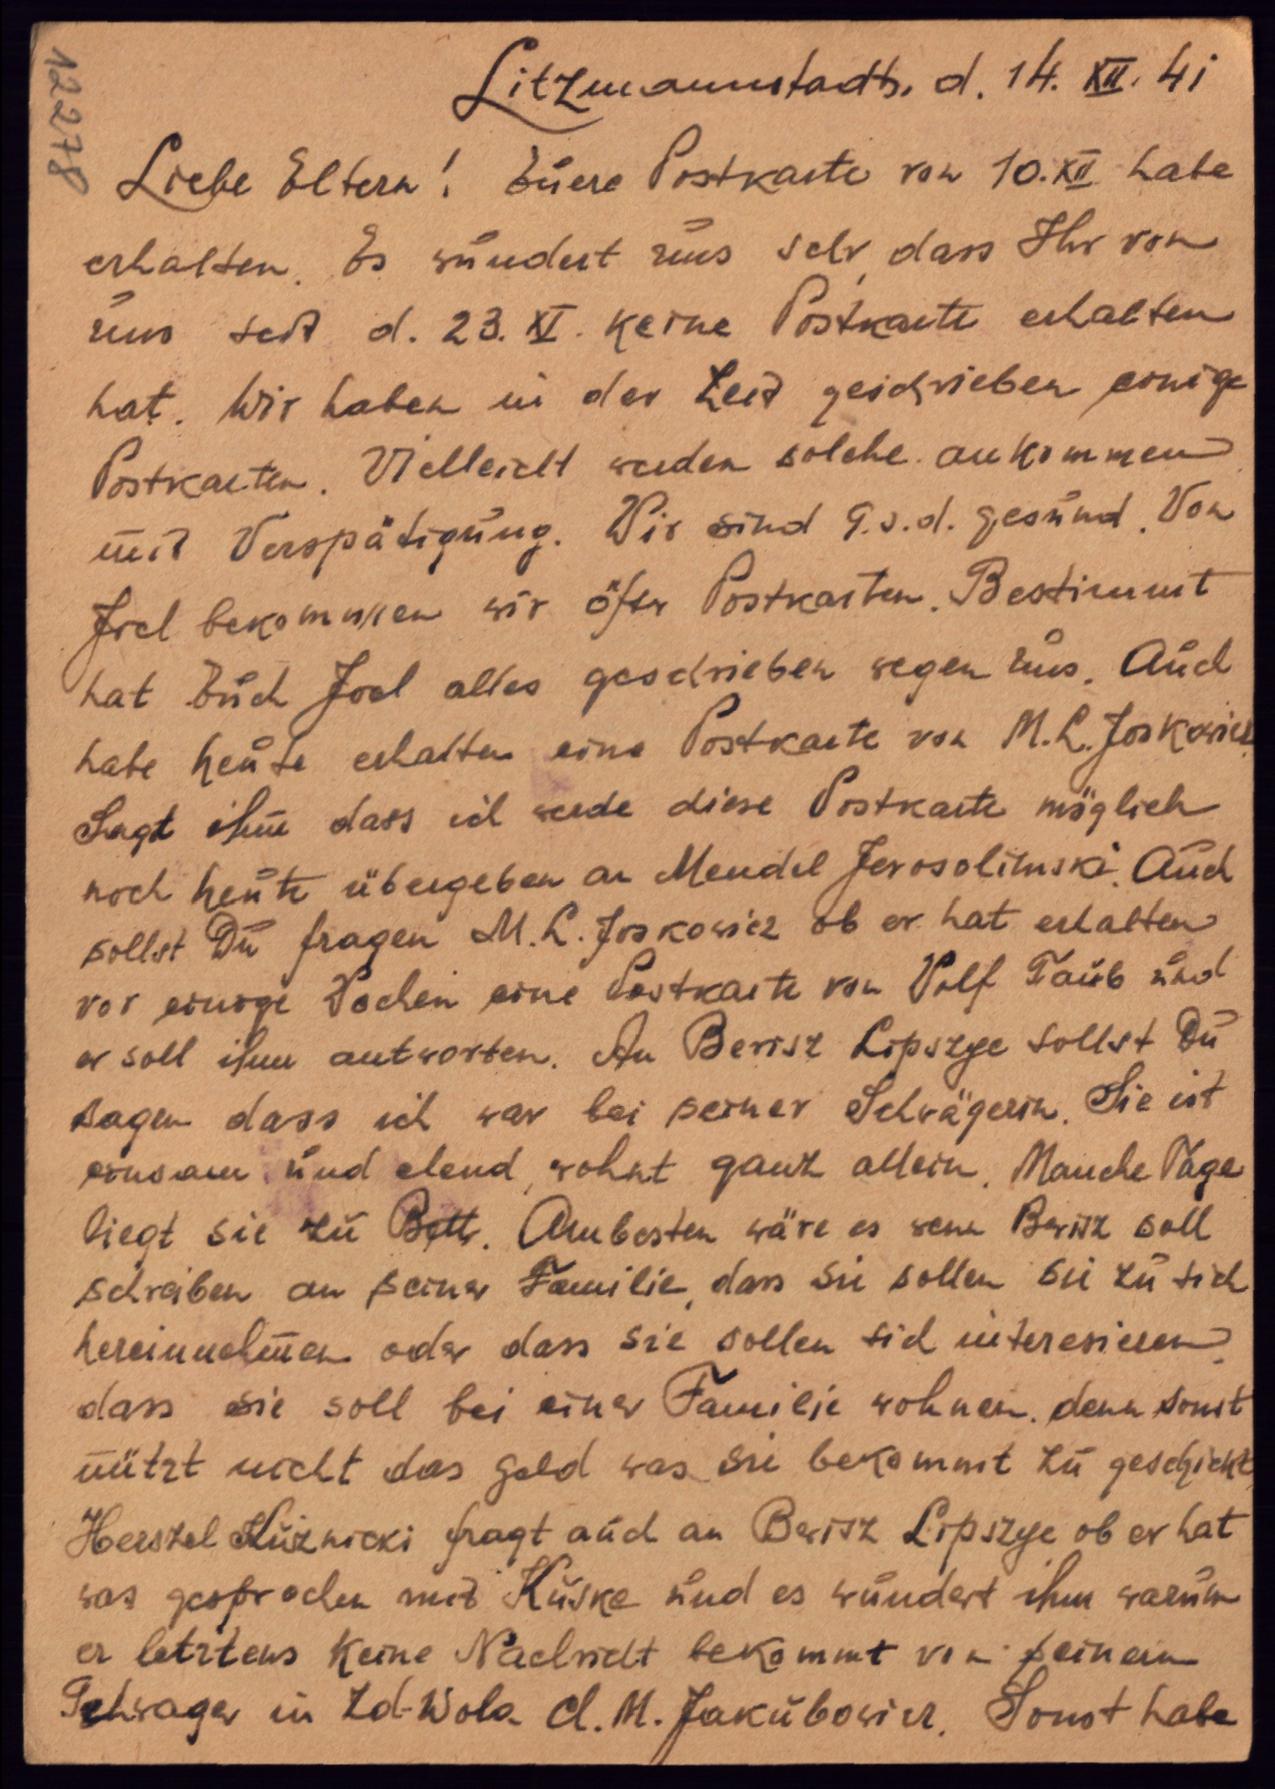 12278
Litzmannstadt, d. 14. XII. 41
Liebe Eltern! Euere Postkarte von 10. XII habe
erhalten. Es wundert uns sehr, dass Ihr von
uns seit d. 23. XI. keine Postkarte erhalten
hat. Wir haben in der Zeit geschrieben einige
Postkarten. Vielleicht werden solche ankommen
mit Verspätigung. Wir sind G.s.d. gesund. Von
Joel bekommen wir öfter Postkarten. Bestimmt
hat Euch Joel alles geschrieben wegen uns. Auch
habe heute erhalten eine Postkarte von M. L. Joskowicz.
Sagt ihm dass ich werde diese Postkarte möglich
noch heute übergeben an Mendel Jerosolimski. Auch
sollst Du fragen M. L. Joskowicz ob er hat erhalten
vor einige Wochen eine Postkarte von Wolf Taub und
er soll ihm antworten. An Berisz Lipszyc sollst Du
sagen dass ich war bei seiner Schwägerin. Sie ist
einsam und elend, wohnt ganz allein. Manche Tage
liegt sie zu Bett. Ambesten wäre es wenn Berisz soll
schreiben an seiner Familie, dass sie sollen sie zu sich
hereinnehmen oder dass sie sollen sich interesieren
dass sie soll bei einer Familie wohnen. denn sonst
nützt nicht das Geld was sie bekommt zu geschickt.
Herszel Kuznicki fragt auch an Berisz Lipszyc ob er hat
was gesprochen mit Kuske und es wundert ihm warum
er letztens keine Nachricht bekommt von seinem
Schwager in Zd-Wola Ch. M. Jakubowicz. Sonst habe